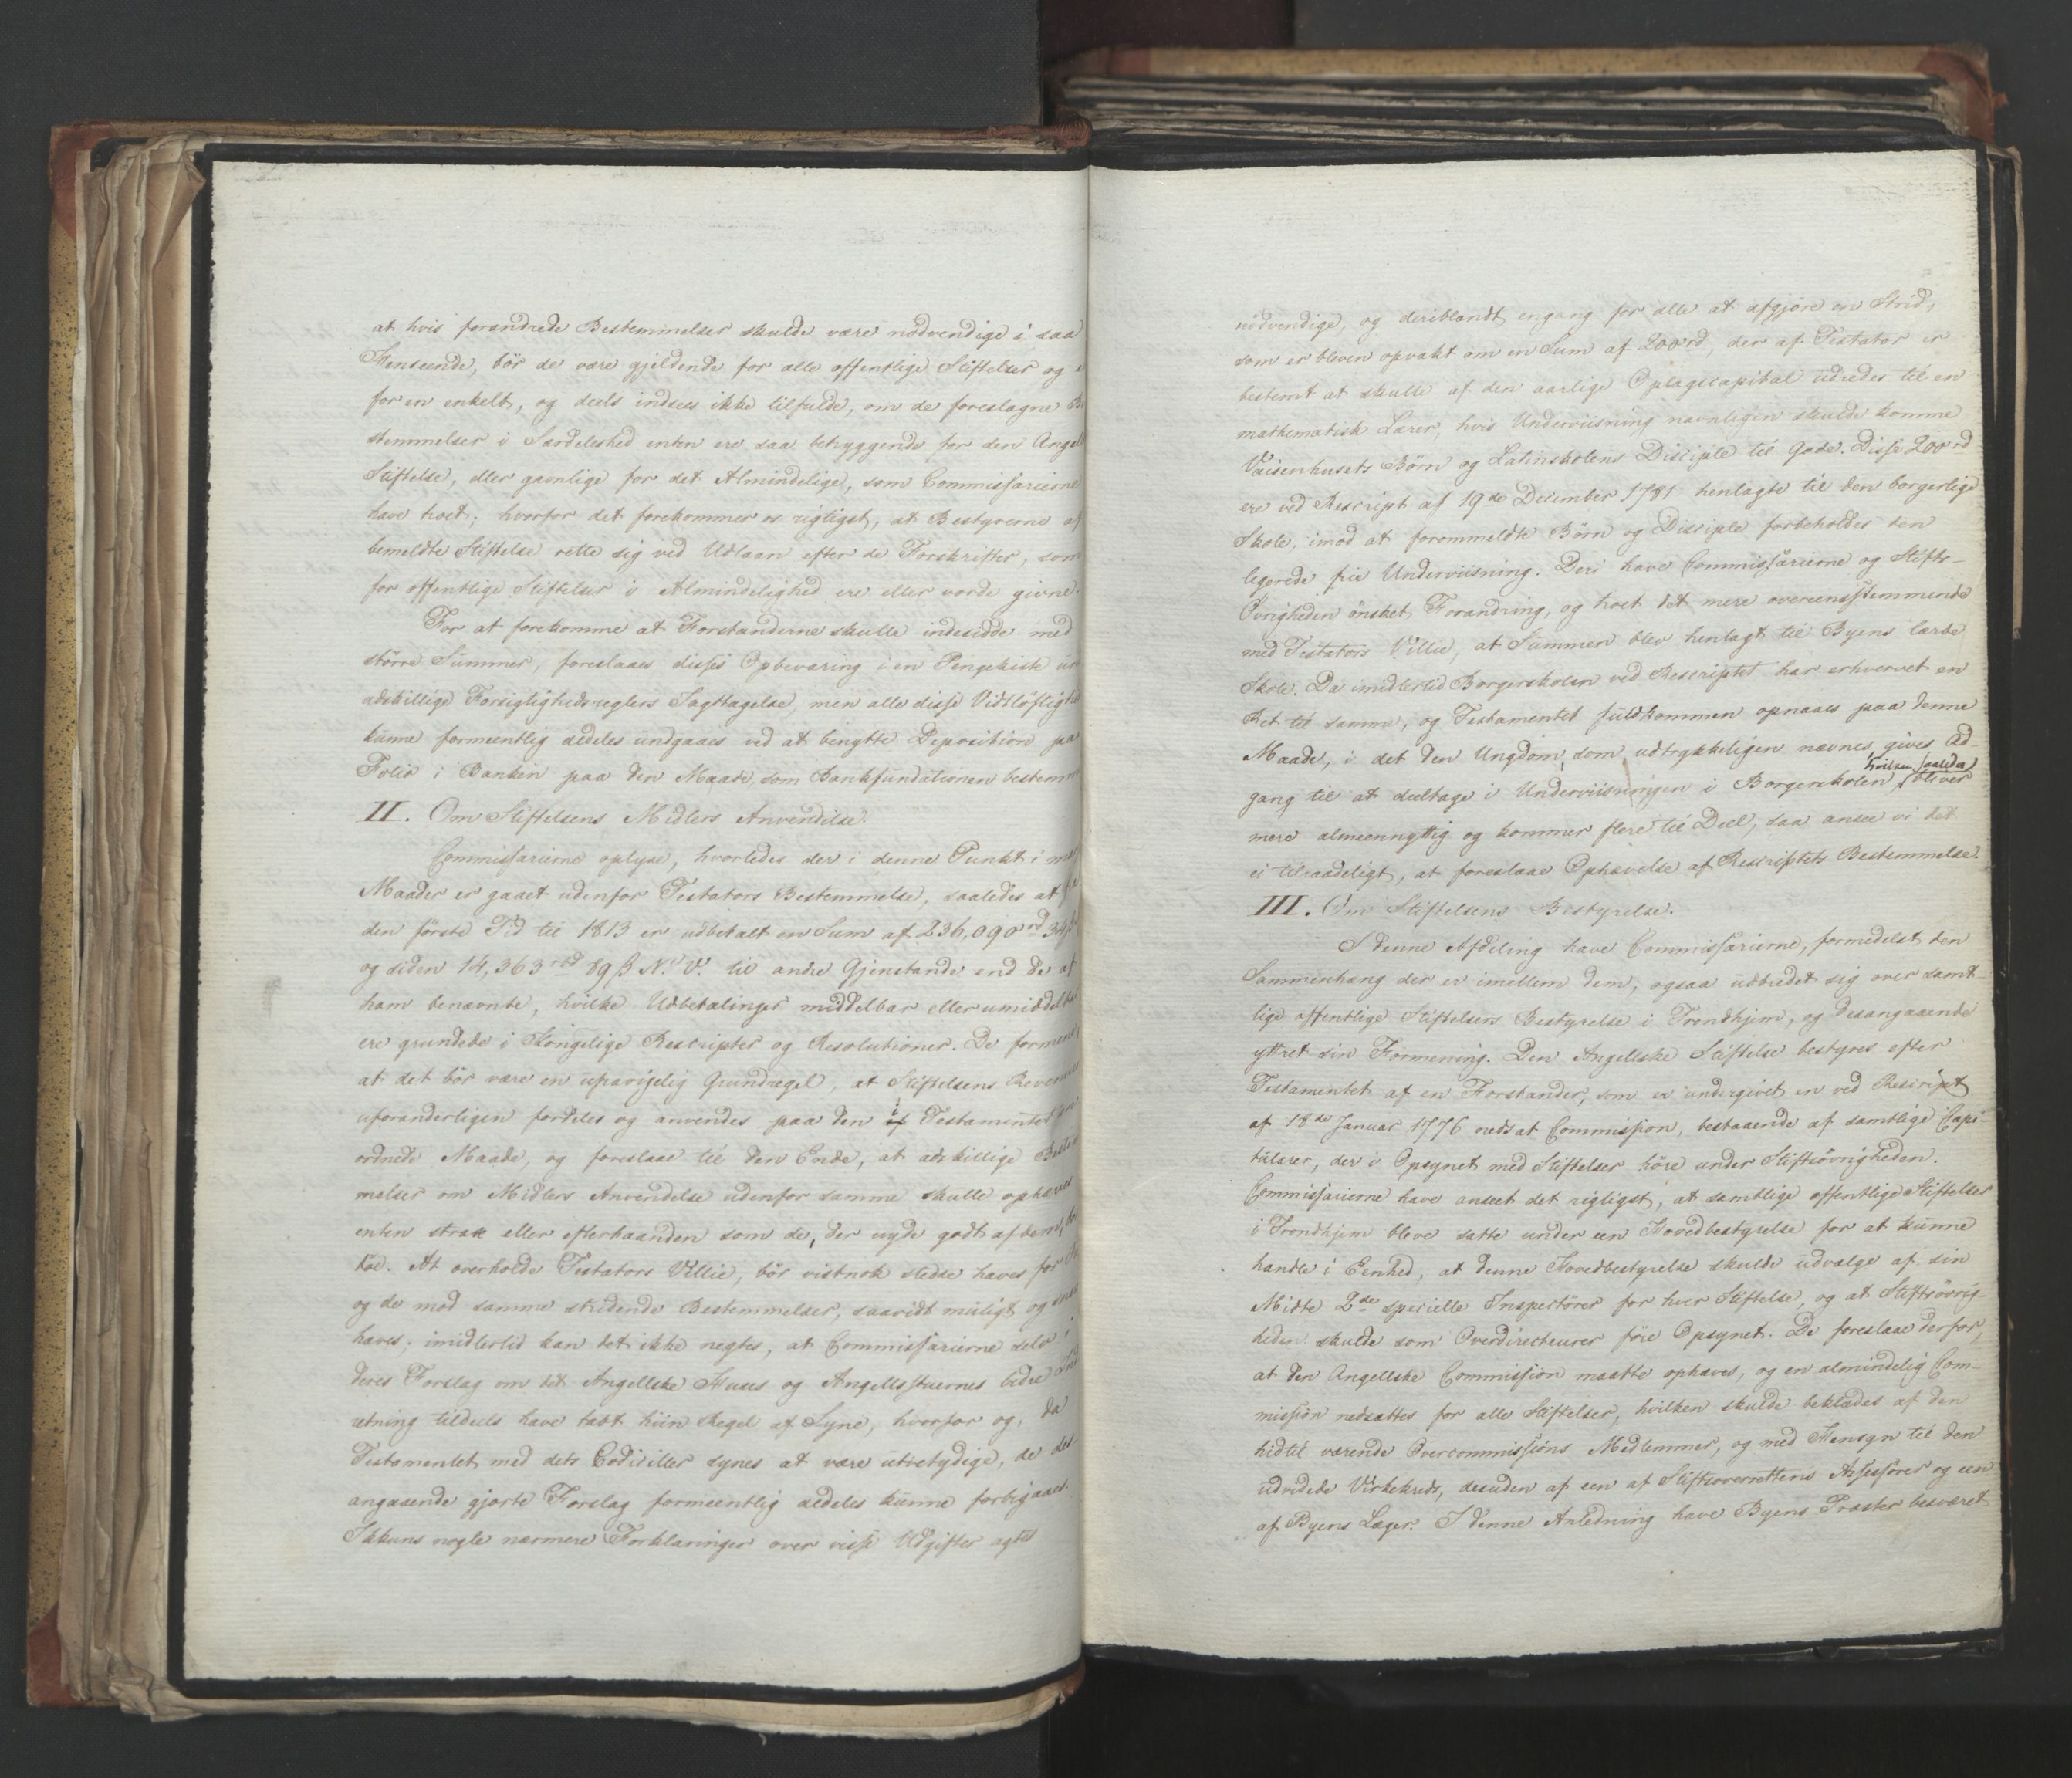 at hvis forandrede Bestemmelser skulde være nödvendige i saa
Henseende, bör de være gjeldende for alle offentlige Stiftelser og
for en enkelt, og deels indsees ikke tilfulde, om de foreslagne Be
stemmelser i Særdeleshed enten ere saa betryggende for den Angel
Stiftelse, eller gavnlige for det Almindelige, som Commissarierne
have troet; hvorfor det forekommer os rigtigst, at Bestyrerne af
bemeldte Stiftelse rette sig ved Udlaan efter de Forskrifter, som
for offentlige Stiftelser i Almindelighed ere eller vorde givne.
For at forekomme at Forstanderne skulle indesidde med
större Summer, foreslaaes disses Opbevaring i en Pengekiste
adskillige Forsigtighedsreglers Iagttagelse, men alle disse Vidtlöftigh
kunne formeentlig aldeles undgaaes ved at benytte Deposition paa
Folio i Banken paa den Maade, som Bankfundationen bestemm
II. Om Stiftelsens Midlers Anvendelse.
Commissarierne oplyse, hvorledes der i denne Punkt i
Maader er gaaet udenfor Testators Bestemmelse, saaledes at
den förste Tid til 1813 er udbetalt en Sum af 236,090 rd
og siden 14,363 rbd 89 ß N. V. til andre Gjenstande end de af
ham benævnte, hvilke Udbetalinger middelbar eller umiddelba
ere grundede i Kongelige Rescripter og Resolutioner. De formene,
at det bör være en upavigelig Grundregel, at Stiftelsens Revenuer
uforanderligen fordeles og anvendes paa den i Testamentet
ordnede Maade, og foreslaae til den Ende, at adskillige Beste
melser om Midlers Anvendelse udenfor samme skulle ophæves
enten strax eller efterhaanden som de, der nyde godt af dem,
döe. At overholde Testators Villie, bör vistnok stedse haves for
og de mod samme stridende Bestemmelser, saavidt muligt og
hæves; imidlertid kan det ikke negtes, at Commissarierne selv i
deres Forslag om det Angellske Huses og Angellsstuernes bedre
retning tildeels have tabt hiin Regel af Syne, hvorfor og, da
Testamentet med dets Codiciller synes at være utvetydige, de des
angaaende gjorte Forslag formeentlig aldeles kunne forbigaaes.
Ikkuns nogle nærmere Forklaringer over visse Udgifter agtes
nödvendige, og deriblandt engang for alle at afgjöre en Strid,
som er bleven opvakt om en Sum af 200 rd, der af Testator er
bestemt at skulle af den aarlige Oplagscapital udredes til en
mathematisk Lærer, hvis Underviisning navnligen skulde komme
Vaisenhusets Börn og Latinskolens Disciple til Gode. Disse 200 rd
ere ved Rescript af 19de December 1781 henlagte til den borgerlige
Skole, imod at forommeldte Börn og Disciple forbeholdes den
legerede frie Underviisning. Deri have Commissarierne og Stifts-
Övrigheden önsket Forandring, og troet det mere overeensstemmende
med Testators Villie, at Summen blev henlagt til Byens lærde
Skole. Da imidlertid Borgerskolen ved Rescriptet har erhvervet en
Ret til samme, og Testamentet fuldkommen opnaaes paa denne
Maade, i det den Ungdom, som udtrykkeligen nævnes, gives Ad-
gang til at deeltage i Underviisningen i Borgerskolen, hvilken saaledes bliver
mere almeennyttig og kommer flere til Deel, saa ansee vi det
ei tilraadeligt, at foreslaae Ophævelse af Rescriptets Bestemmelse.
III. Om Stiftelsens Bestyrelse.
I denne Afdeling have Commissarierne, formedelst den
Sammenhang der er imellem dem, ogsaa udbredet sig over samt-
lige offentlige Stiftelsers Bestyrelse i Trondhjem, og desangaaende
yttret sin Formening. Den Angellske Stiftelse bestyres efter
Testamentet af en Forstander, som er undergivet en ved Rescript
af 18de Januar 1776 nedsat Commission, bestaaende af samtlige Capi-
tularer, der i Opsynet med Stiftelser höre under Stiftsövrigheden.
Commissarierne have anseet det rigtigst, at samtlige offentlige Stiftelser
i Trondhjem bleve satte under een Hovedbestyrelse for at kunne
handle i Eenhed, at denne Hovedbestyrelse skulde udvælge af sin
Midte 2de specielle Inspecteurer for hver Stiftelse, og at Stiftsövrig-
heden skulde som Overdirecteurer före Opsynet. De foreslaae derfor,
at den Angellske Commission maatte ophæves, og en almindelig Com-
mission nedsættes for alle Stiftelser, hvilken skulde beklædes af den
hidtil værende Overcommissions Medlemmer, og med Hensyn til den
udvidede Virkekreds, desuden af een af Stiftsoverrettens Assessorer og een
af Byens Læger. I denne Anledning have Byens Præster besværet